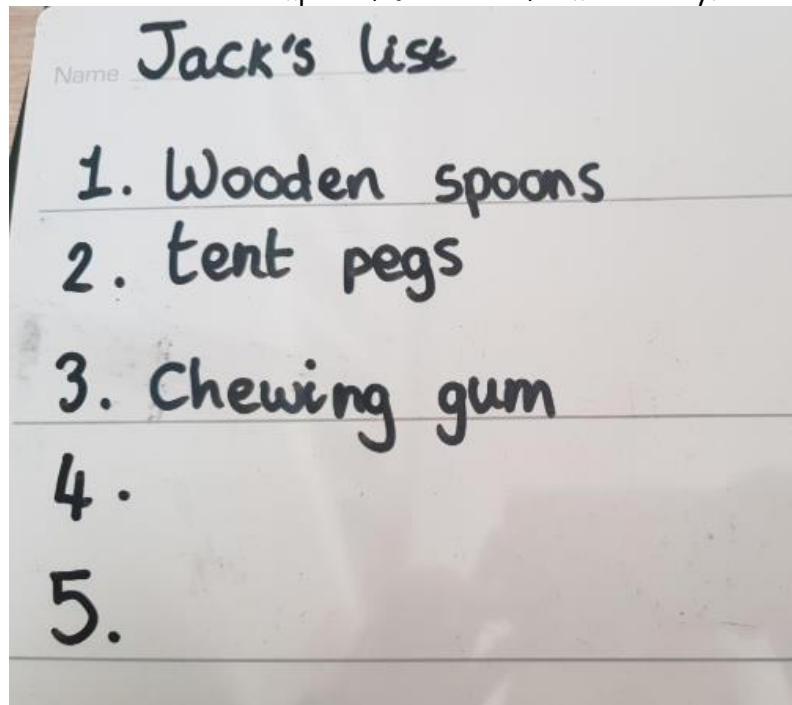 Name Jack's list
1. Wooden spoons
2. tent pegs
3. Chewing gum
4.
5.